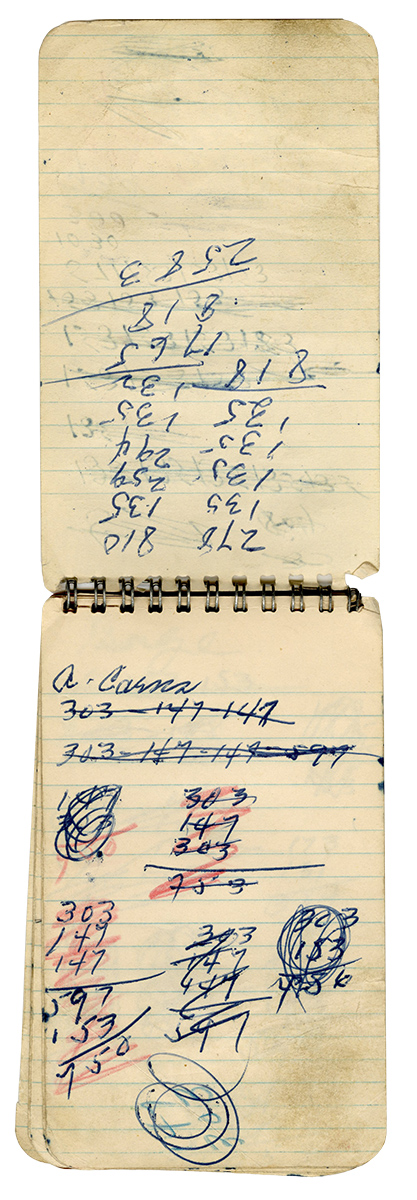 278 810
135 135
135 259
135 294
135 135
818 132
1765
818
2583
A.
303-147-147
303-147-147-597
303
147
303
753
303
147
147
597
153
750
303
147
147
597
303
153